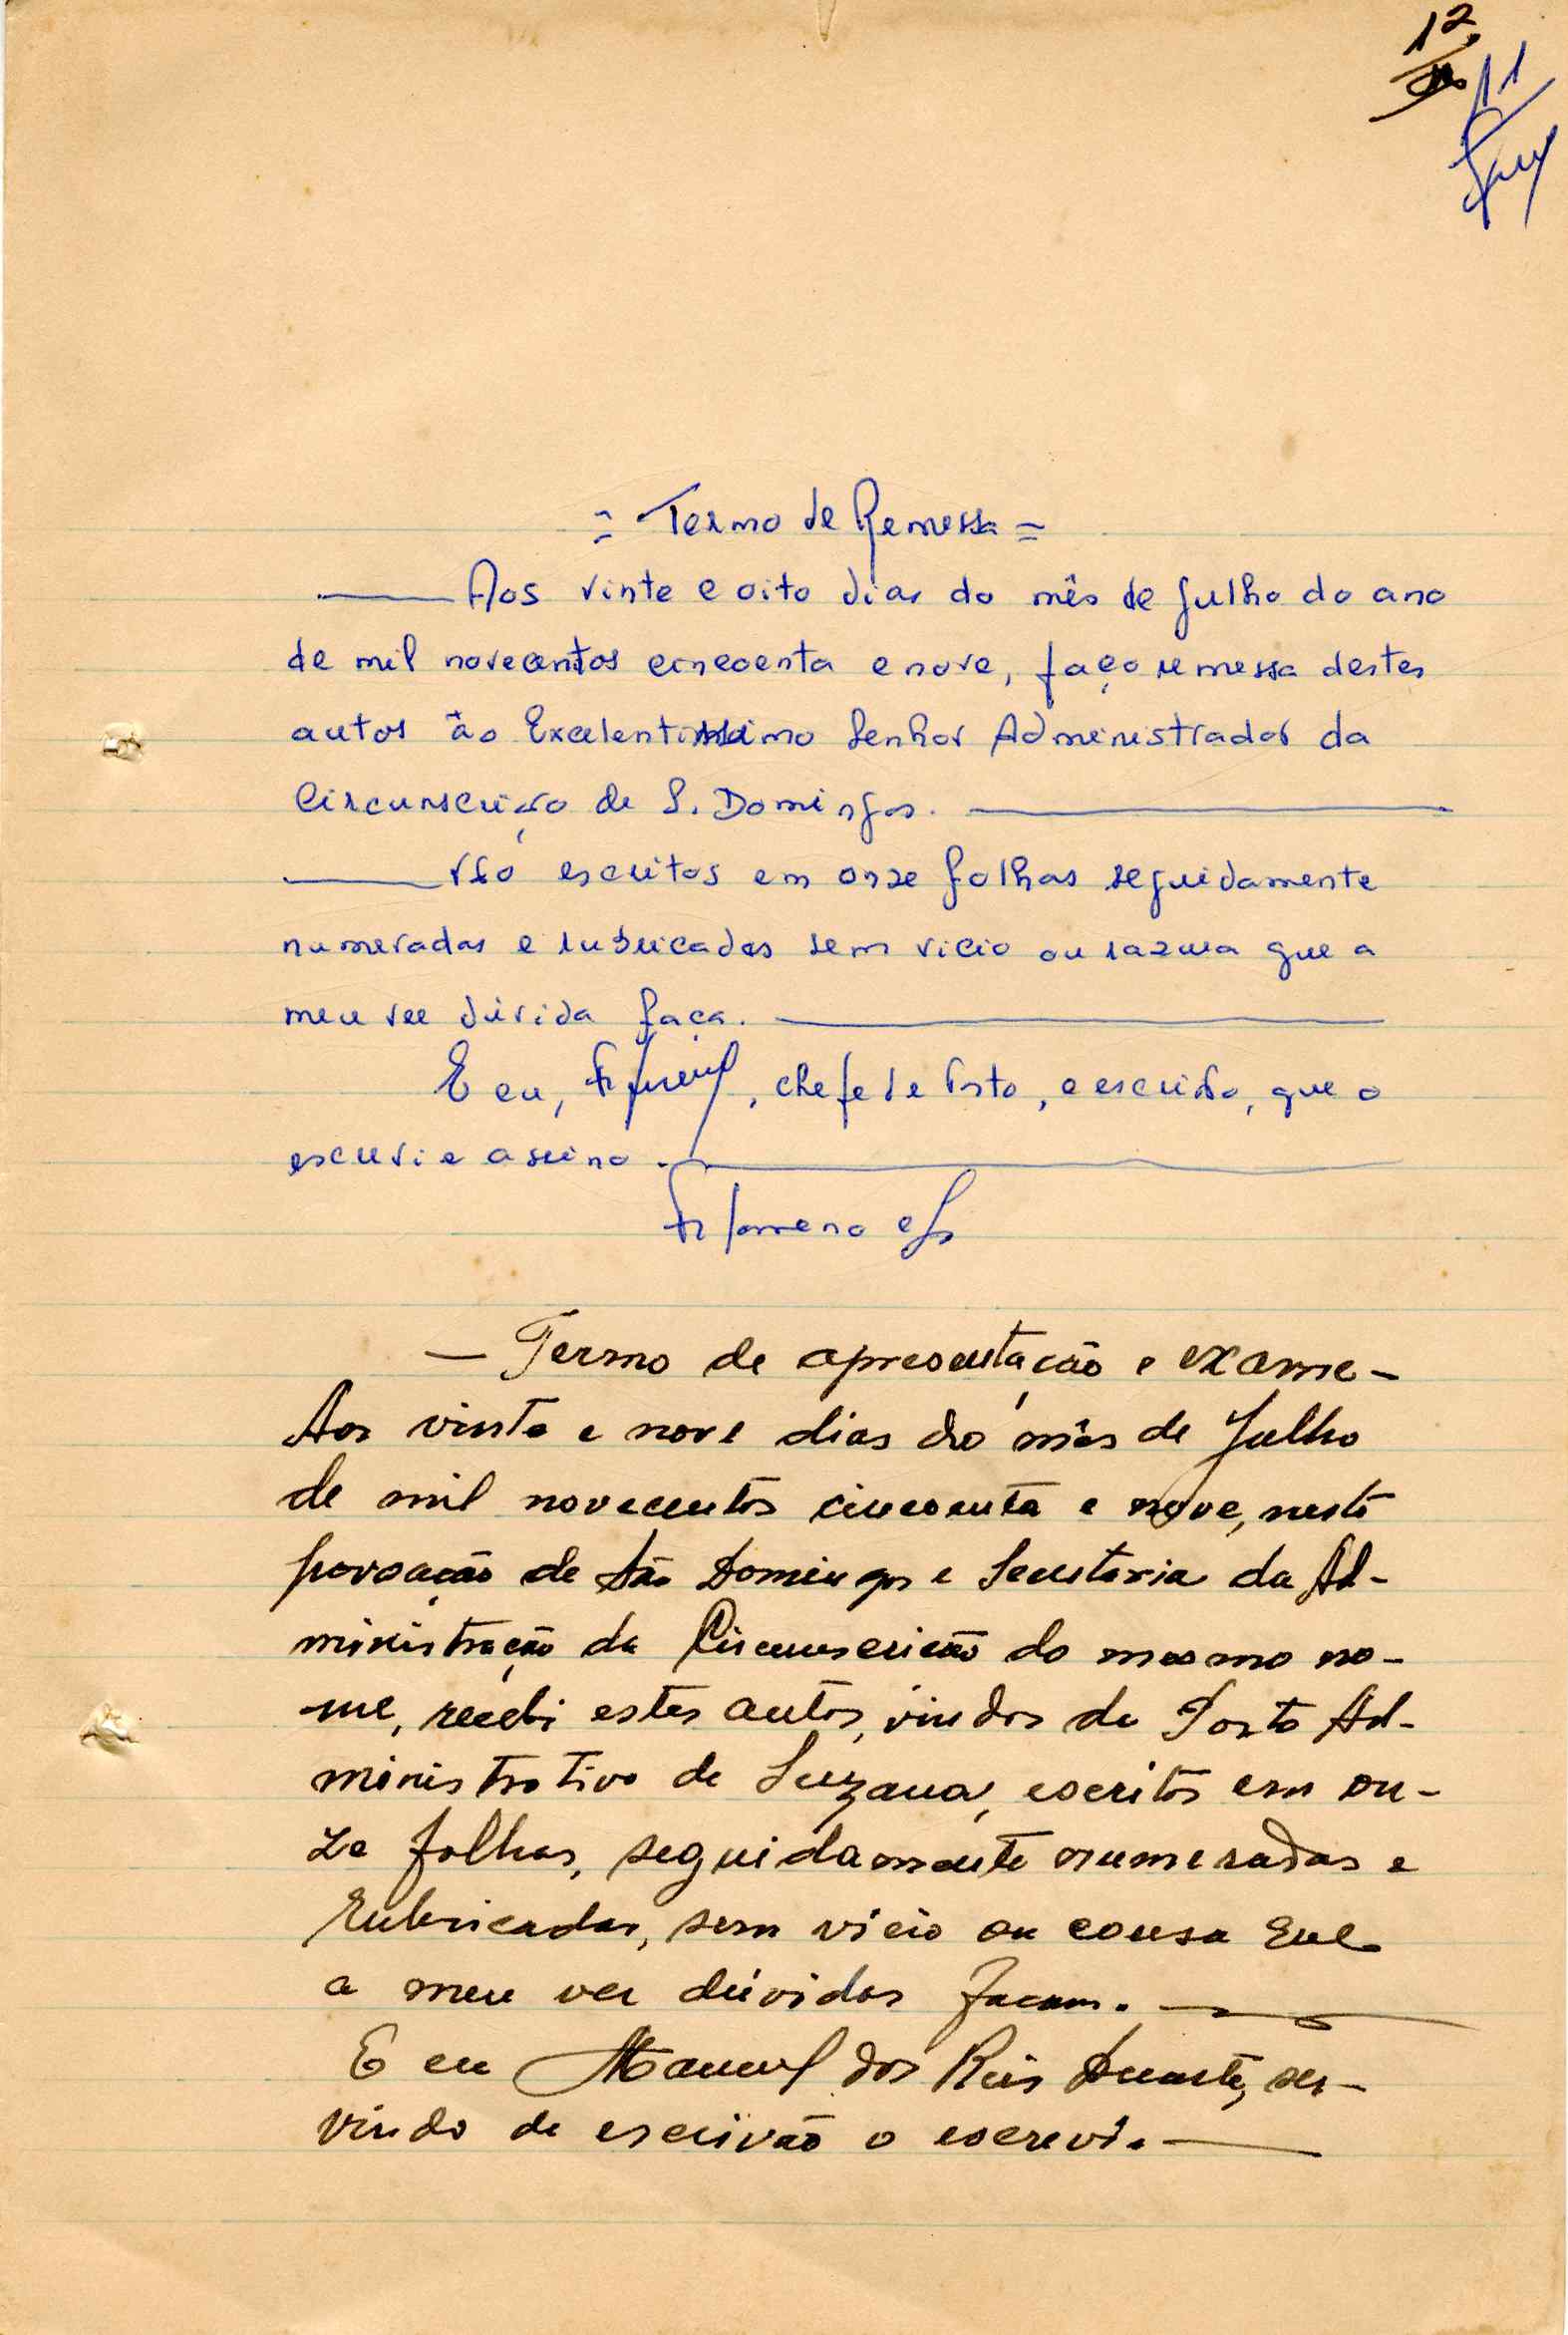 12
11
= Termo de Remessa =
Aos vinte e oito dias do mês de Julho do ano
de mil novecentos cincoenta e nove, faço remessa destes
autos ão Excelentissimo Senhor Administrador da
Circunscrição de S. Domingos.
Vão escritos em onze folhas seguidamente
numeradas e rubricadas sem vicio ou razura que a
meu ver dúvida faça.
E eu, , chefe de Posto, e escrivão, que o
escrevi e assino.
— Termo de apresentação e exame —
Aos vinte e nove dias do mês de Julho
de mil novecentos cincoenta e nove, nesta
povoação de São Domingos e Secretaria da Ad-
ministração da Circunscrição do mesmo no-
me, recebi estes autos, vindos do Posto Ad-
ministrativo de Suzana, escritos em on-
ze folhas, seguidamente numeradas e
rubricadas, sem vicio ou cousa que
a meu ver dúvidas façam.
E eu Manuel dos Reis Duarte, ser-
vindo de escrivão o escrevi.